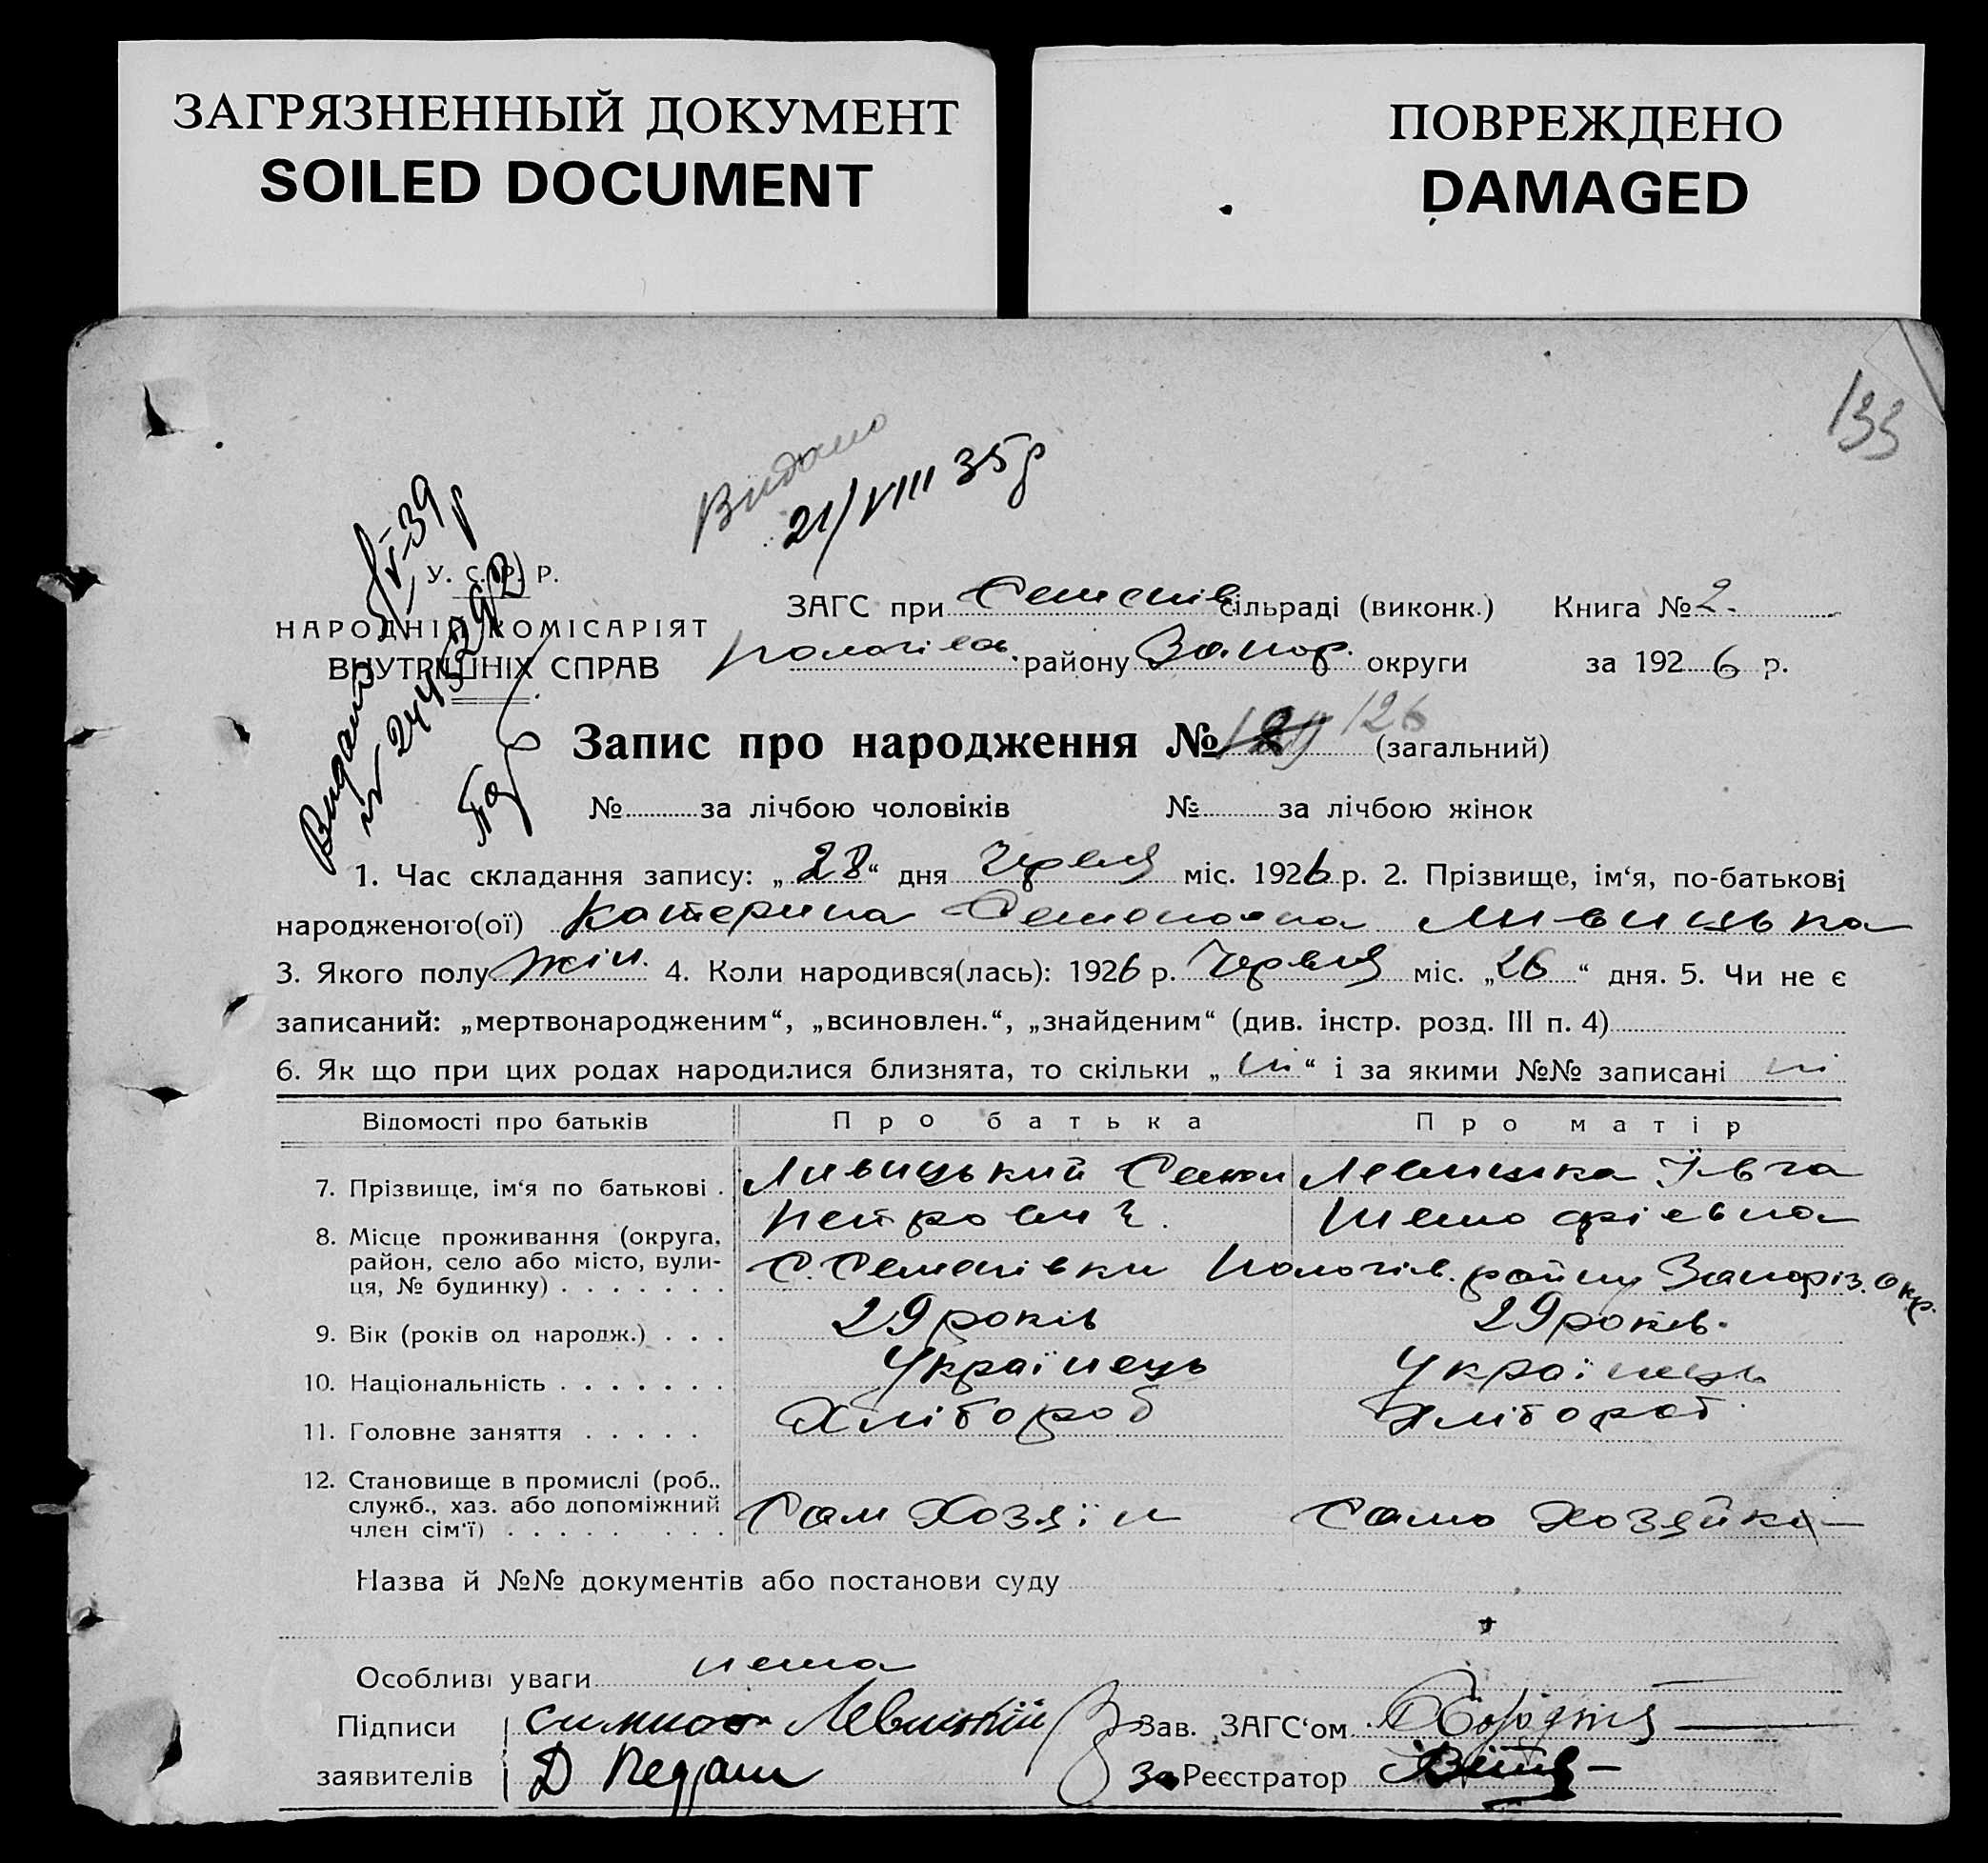 ЗАГРЯЗНЕННЫЙ ДОКУМЕНТ
SOILED DOCUMENT
ПОВРЕЖДЕНО
DAMAGED
133
Видано
21/VIII 35р
У. С. Р. Р.
НАРОДНІЙ КОМІСАРІЯТ
ВНУТРІШНІХ СПРАВ
ЗАГС при Семенів сільраді (виконк.) Книга № 2.
району Запор. округи за 1926 р.
Запис про народження № 126 (загальний)
№ за лічбою чоловіків № за лічбою жінок
1. Час складання запису: „28“ дня Червня міс. 1926 р. 2. Прізвище, ім‘я, по-батькові
народженого(ої) Катерина Семеновна Ливицька
3. Якого полу жін. 4. Коли народився(лась): 1926 р. Червня міс. „26“ дня. 5. Чи не є
записаний: „мертвонародженим“, „всиновлен.“, „знайденим“ (див. інстр. розд. III п. 4)
6. Як що при цих родах народилися близнята, то скільки „ні“ і за якими №№ записані ні
Відомості про батьків Про батька Про матір
7. Прізвище, ім‘я по батькові . Ливицький Семен Левицька Ївга
Петрович. Тимофіевна
8. Місце проживання (округа, район, село або місто, вулиця, № будинку) . . . . . . . С. Семенівки Пологів. району Запоріз. Окр.
9. Вік (років од народж.) . . . 29 років 29 років.
10. Національність . . . . . . . Українець Українець
11. Головне заняття . . . . . Хлібороб Хлібороб.
12. Становище в промислі (роб., служб., хаз. або допоміжний член сім‘ї) . . . . . . . . . Сам Хозяїн Сама Хозяйка
Назва й №№ документів або постанови суду
Особливі уваги нема
Підписи Левицкій Зав. ЗАГС‘ом
заявителів Д За Реєстратор